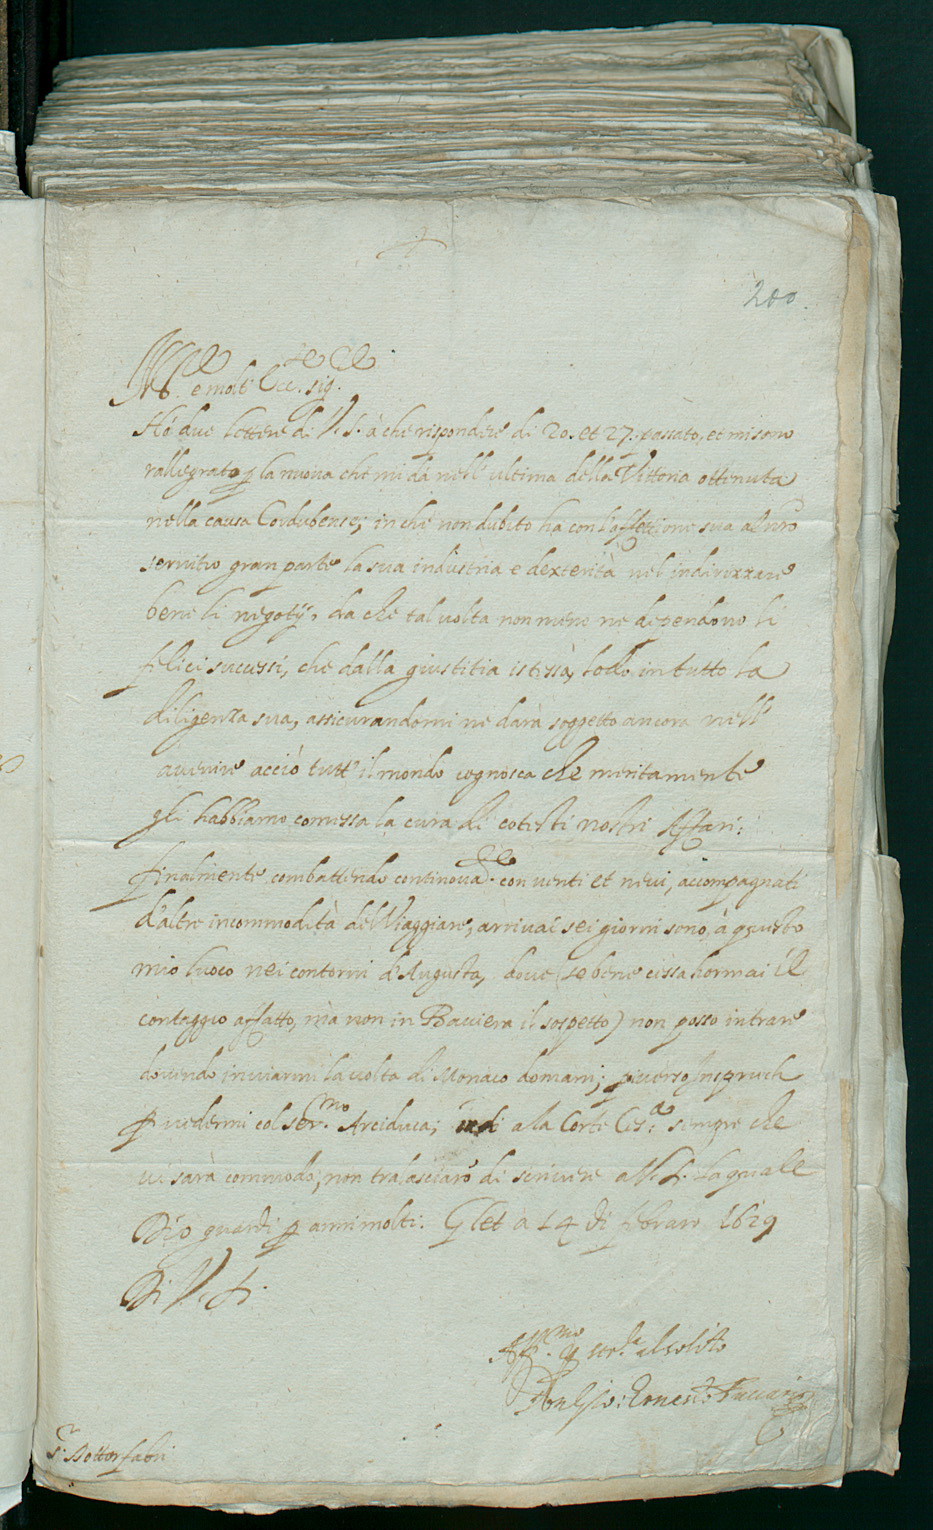 200
M.to Ill.re e molto Ecc.te Sig.re
Hò due lettere di V. S. à che rispondere di 20. et 27. passato, et mi sono
rallegrato p la nuova che mi dà nell' ultima della Vittoria ottenuta
nella causa Cordubense; in che non dubito ha con l'affettione sua al
servitio gran parte la sua indüstria e dexterità nel indirizzare
bene li negotij, da che tal volta non meno ne dependono li
felici successi, che dalla giustitia istessa, lodo in tutto la
diligenza sua, assicurandomi ne darà soggetto ancora nell'
avenire acciò tutt' il mondo cognosca che meritamente
gli habbiamo comessa la cura di cotesti nostri Affari:
finalmente combattendo continovad.te con venti et nevi, accompagnati
d'altre incommodità del Viaggiare, arrivai sei giorni sono, à questo
mio luoco nei contorni d'Augusta, dove (se bene cessa hormai il
contaggio affatto, mà non in Baviera il sospetto) non posso intrare
dovendo inviarmi la volta di Monaco domani; Inspruch
p vedermi col Ser.mo Arciduca; indi a la Corte Ces.a sempre che
vi sarà commodo, non tralasciarò di scrivere a V. S. la quale
Dio guardi p anni molti. Glet a 14 di febraro 1629
Di V. S.
Aff.mo p ser.la al solito
Ernesto Fuccari
S.r Dottor Fabri